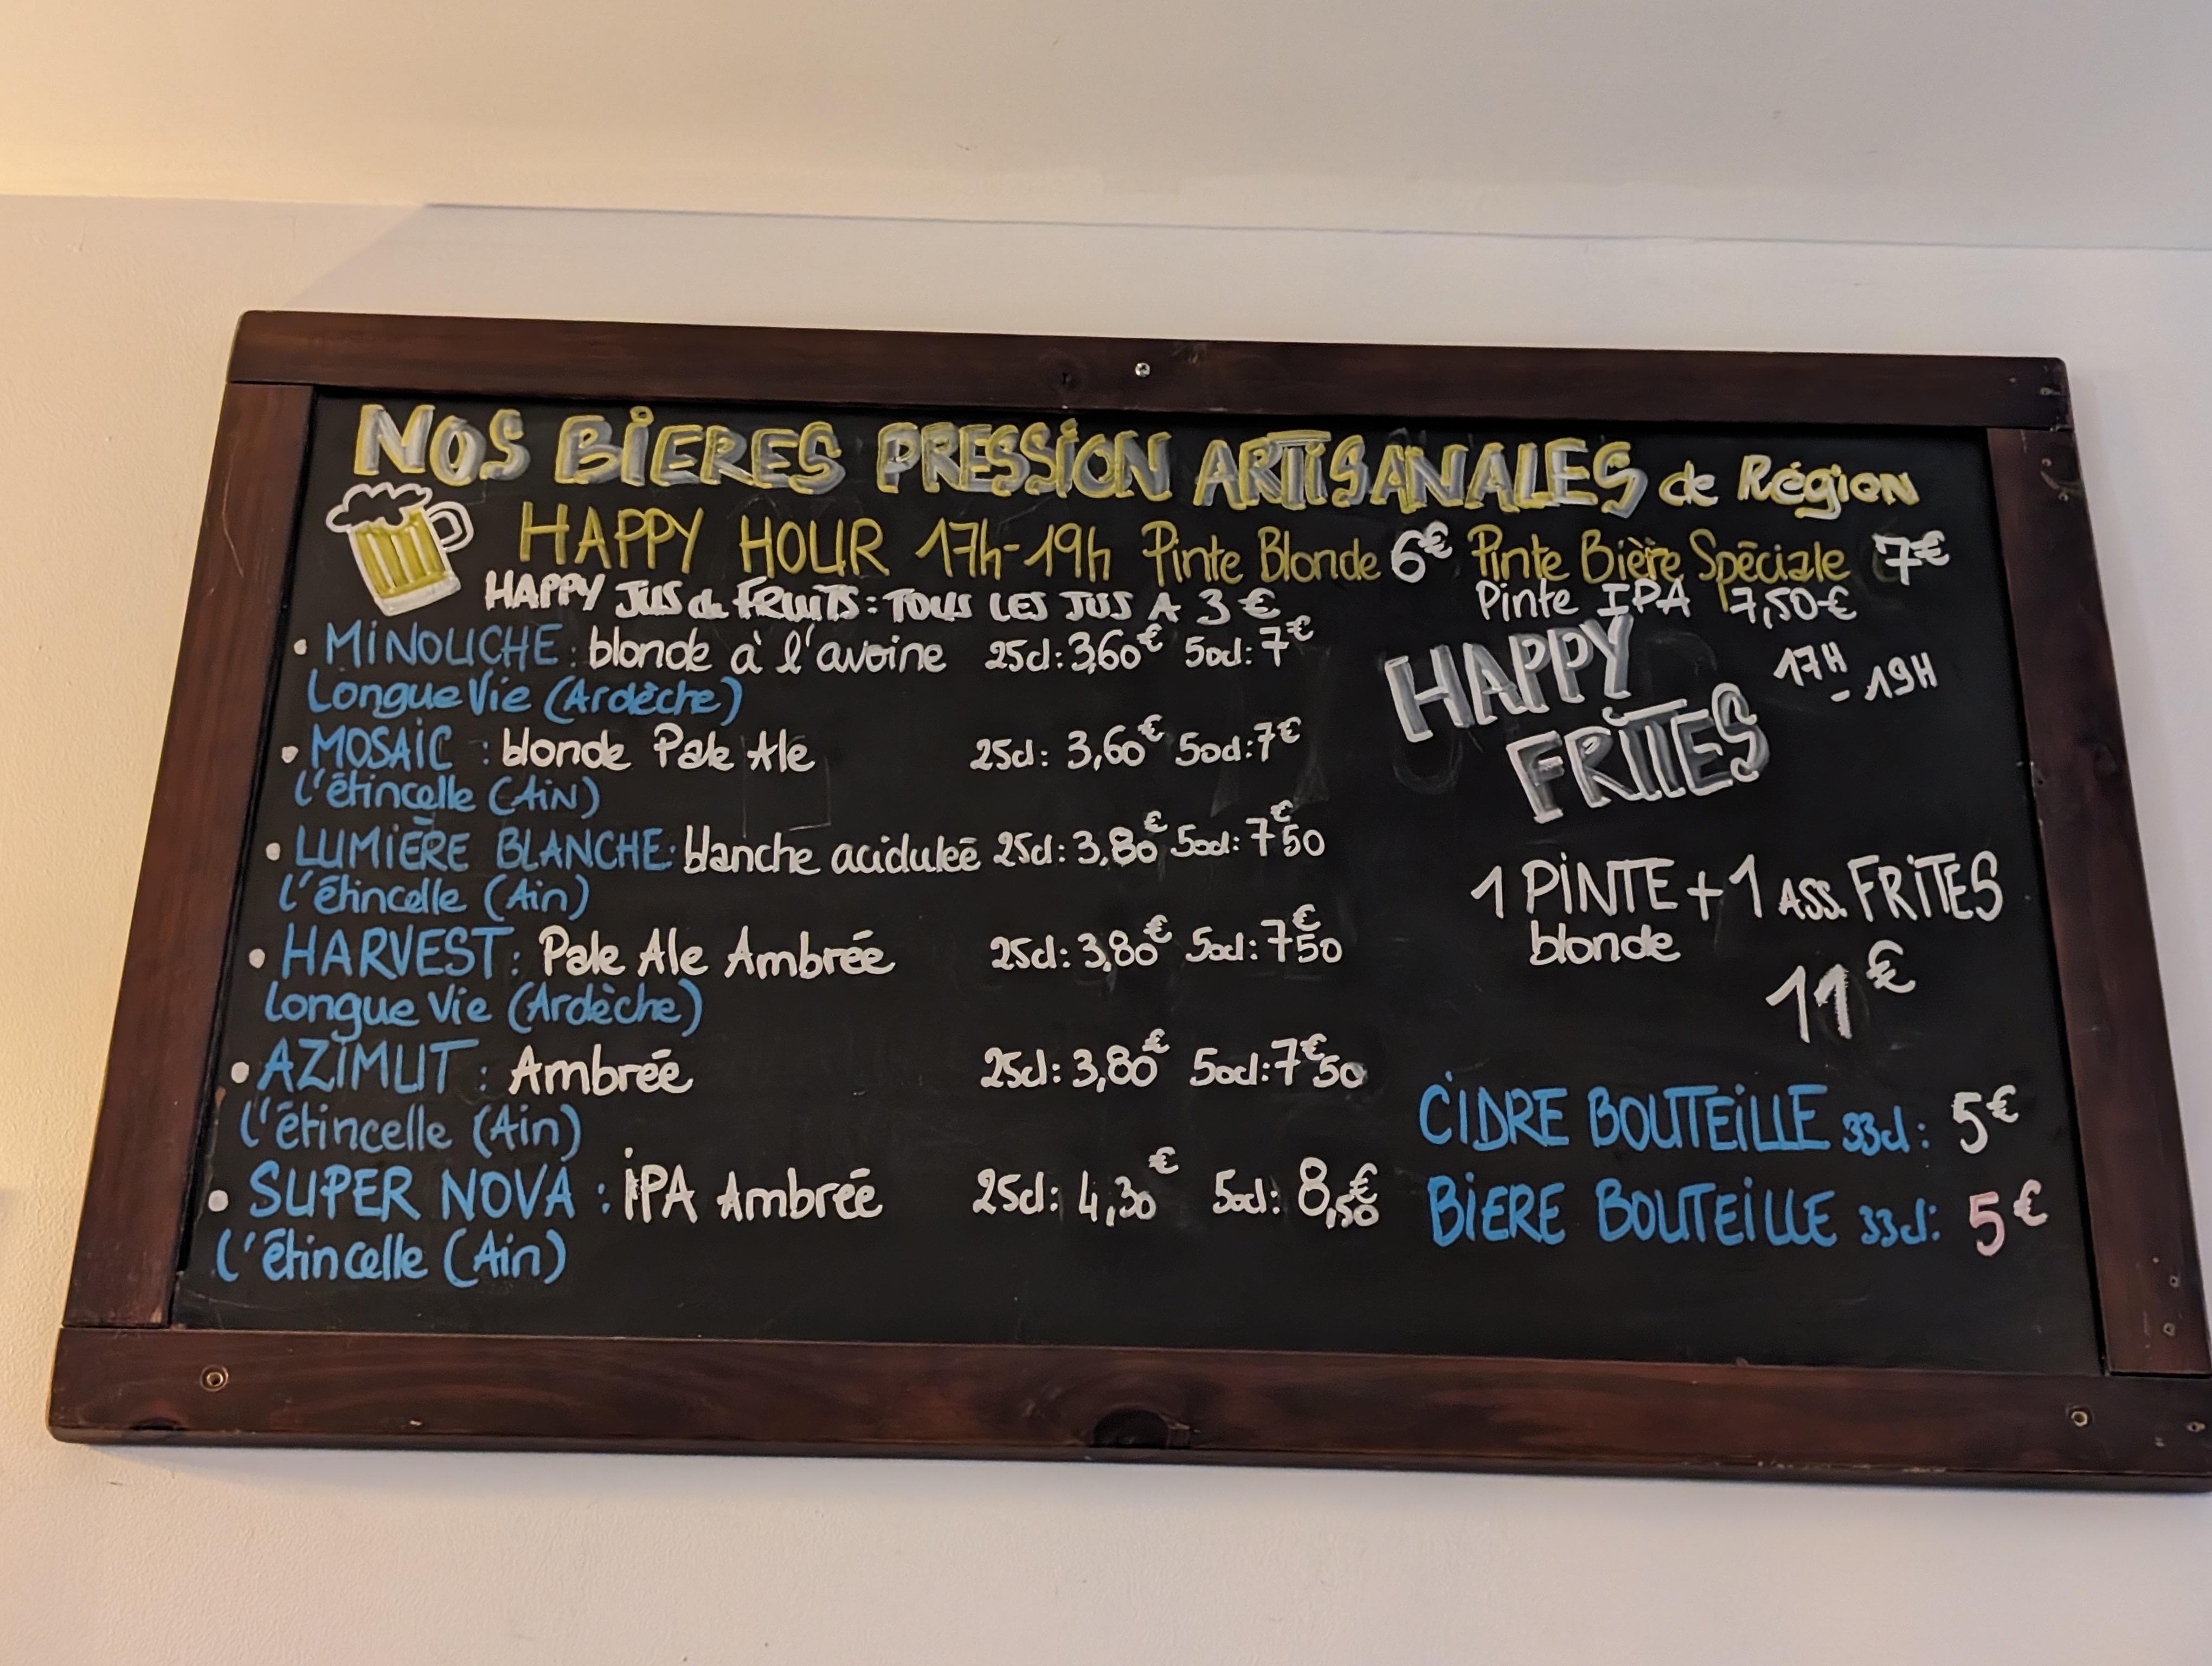 NOS BIERES PRESSION ARTISANALES de Région
HAPPY HOUR 17h-19h Pinte Blonde 6€ Pinte Bière Spéciale 7€
HAPPY JUS de FRUITS: TOUS LES JUS A 3 €
Pinte IPA 7,50€
• MINOUCHE: blonde à l'avoine 25cl: 3,60€ 50cl: 7€
Longue Vie (Ardèche)
• MOSAIC : blonde Pale Ale 25cl: 3,60€ 50cl: 7€
l'étincelle (AiN)
• LUMIÈRE BLANCHE: blanche acidulée 25cl: 3,80€ 50cl: 7€50
l'étincelle (Ain)
• HARVEST: Pale Ale Ambrée 25cl: 3,80€ 50cl: 7€50
Longue Vie (Ardèche)
• AZIMUT : Ambrée 25cl: 3,80€ 50cl: 7€50
l'étincelle (Ain)
• SUPER NOVA : iPA Ambrée 25cl: 4,30€ 50cl: 8,50€
l'étincelle (Ain)
HAPPY
FRITES
17H
- 19H
1 PINTE + 1 ASS. FRITES
blonde
11€
CIDRE BOUTEILLE 33cl: 5€
BIERE BOUTEILLE 33cl: 5€